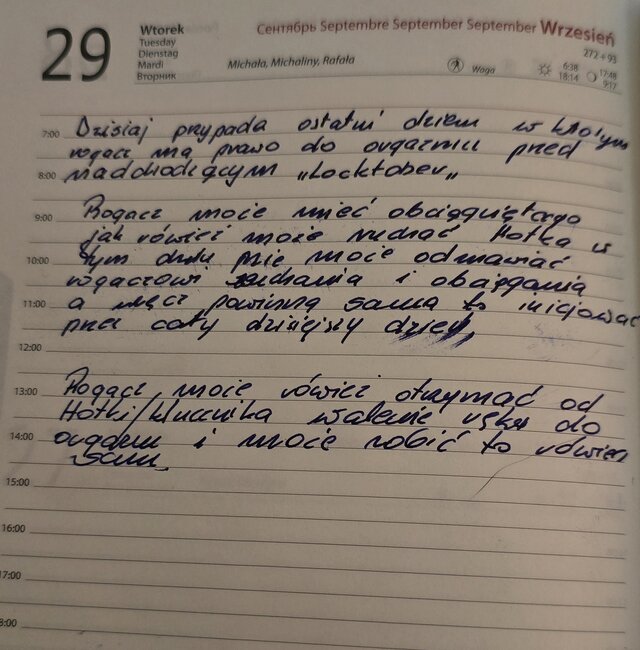 29
Wtorek
Tuesday
Dienstag
Mardi
Вторник
Сентябрь Septembre September September Wrzesień
272+93
Michała, Michaliny, Rafała
Waga
6:38
18:14
17:48
9:17
7:00 Dzisiaj przypada ostatni dzień w którym
rogacz ma prawo do orgazmu przed
8:00 nadchodzącym „Locktober„
9:00 Rogacz może mieć obciągniętego
jak rówież może ruchać Hotka w
10:00 tym dniu nie może odmawiać
rogaczowi ruchania i obciągania
11:00 a wręcz powinna sama to inicjować
przez cały dzisiejszy dzień,
12:00
13:00 Rogacz może rówież otrzymać od
Hotki/klucznika walenie ręką do
14:00 orgazmu i może robić to rówież
sam.
15:00
16:00
17:00
8:00